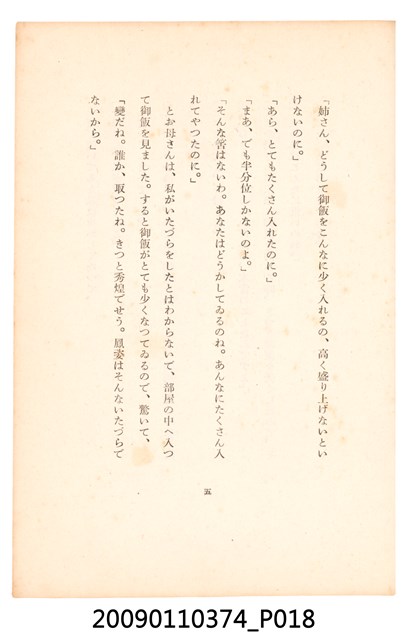 「姉さん、どうして御飯をこんなに少く入れるの、高く盛り上げないとい
けないのに。」
「あら、とてもたくさん入れたのに。」
「まあ、でも半分位しかないのよ。」
「そんな筈はないわ。あなたはどうかしてゐるのね。あんなにたくさん入
れてやつたのに。」
とお母さんは、私がいたづらをしたとはわからないで、部屋の中へ入つ
て御飯を見ました。すると御飯がとても少くなつてゐるので、驚いて、
「變だね。誰か、取つたね。きつと秀煌でせう。鳳姿はそんないたづらで
ないから。」
五
20090110374_P018